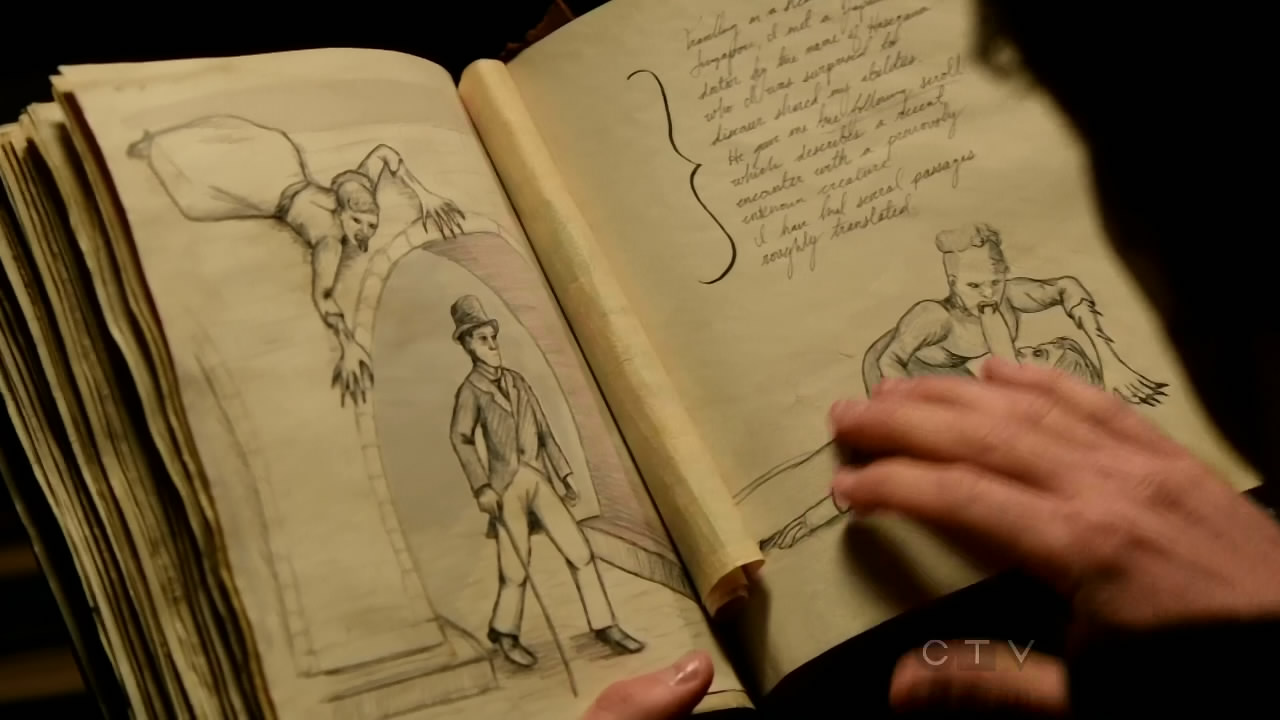 Travelling in a
Singapore, I met a Japanese
doctor by the name of Hasegawa
who I was surprised to
discover shared my abilities.
He gave me the following scroll
which describes a recent
encounter with a previously
unknown creature.
I have had several passages
roughly translated
CTV